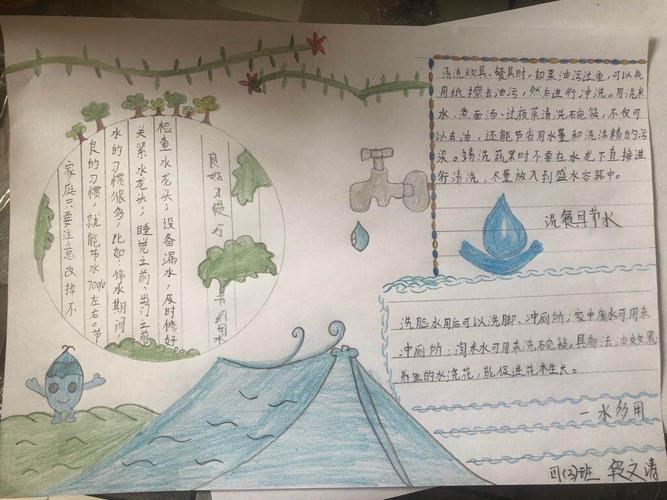 家庭只要注意改掉不
良的习惯，就能节水70%左右。节
水的习惯很多，比如：停水期间
关紧水龙头；睡觉之前、出门之前
检查水龙头，设备漏水，及时修好。
良好习惯
节约用水
清洗炊具、餐具时，如果油污过重，可以先
用纸擦去油污，然后进行冲洗。用洗米
水、煮面汤、过夜茶清洗碗筷，不仅可
以去油，还能节省用水量和洗洁精的污
染。清洗蔬果时不要在水龙下直接进
行清洗，尽量放入到盛水容器中。
洗餐具节水
洗脸水用后可以洗脚、冲厕所；家中废水可用来
冲厕所；淘米水可用来洗碗筷，具有去油效果
养鱼的水浇花，能促进花木生长。
一水多用
四(2)班 段文清